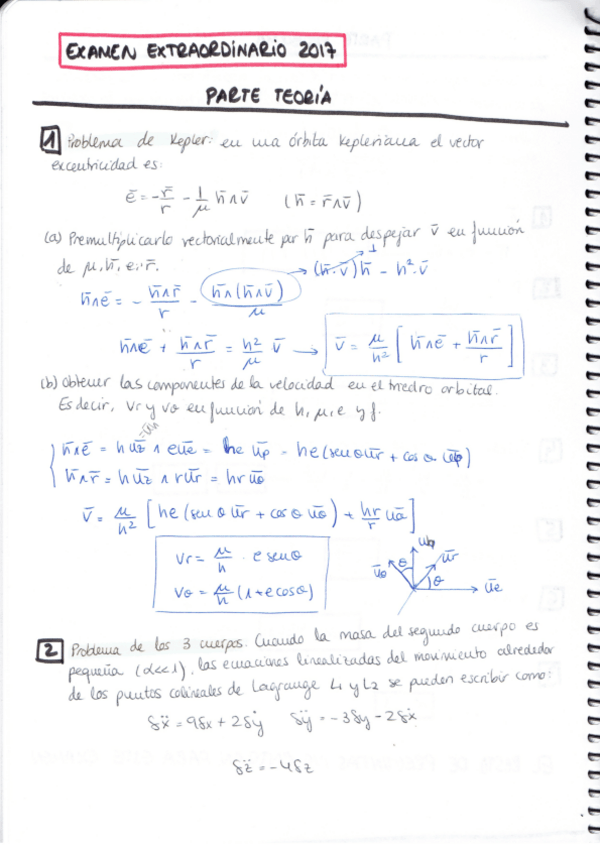 EXAMEN EXTRAORDINARIO 2017
PARTE TEORÍA
1 Problema de Kepler: en una órbita kepleriana el vector
excentricidad es:
ē = - r̄/r - 1/μ h̄∧v̄ (h̄ = r̄∧v̄)
(a) Premultiplicarlo vectorialmente por h̄ para despejar v̄ en función
de μ, h̄, e, r̄.
(h̄·v̄)h̄ - h²·v̄
h̄∧ē = - h̄∧r̄/r - h̄∧(h̄∧v̄)/μ
h̄∧ē + h̄∧r̄/r = h²/μ v̄ → v̄ = μ/h² [h̄∧ē + h̄∧r̄/r]
(b) Obtener las componentes de la velocidad en el triedro orbital.
Es decir, vr y vθ en función de h, μ, e y f.
h̄∧ē = h ūz ∧ e ūe = he ūp = he (senθ ūr + cosθ ūθ)
h̄∧r̄ = h ūz ∧ r ūr = hr ūθ
v̄ = μ/h² [he (senθ ūr + cosθ ūθ) + hr/r ūθ]
vr = μ/h · e senθ
vθ = μ/h (1 + e cosθ)
ūθ θ up ūr θ ūe
2 Problema de los 3 cuerpos. Cuando la masa del segundo cuerpo es
pequeña (α<<1), las ecuaciones linealizadas del movimiento alrededor
de los puntos colineales de Lagrange L1 y L2 se pueden escribir como:
δẍ = 9δx + 2δẏ δÿ = -3δy - 2δẋ
δz̈ = -4δz